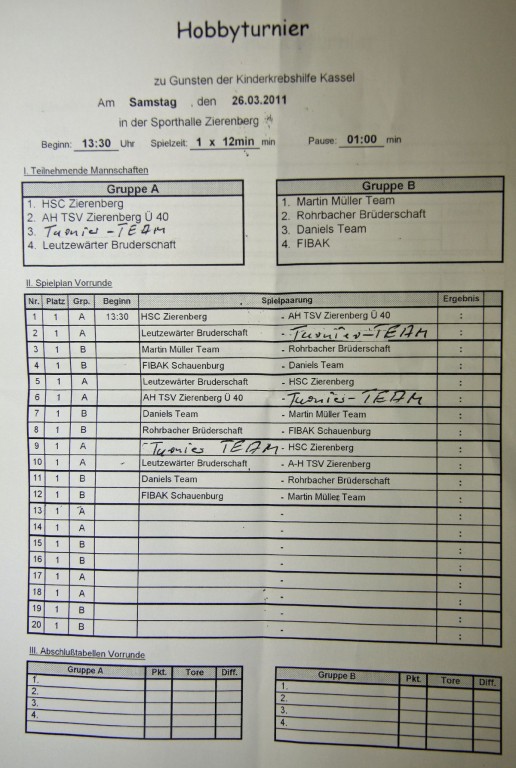 Hobbyturnier
zu Gunsten der Kinderkrebshilfe Kassel
Am Samstag , den 26.03.2011
in der Sporthalle Zierenberg
Beginn: 13:30 Uhr Spielzeit: 1 x 12min min Pause: 01:00 min
I. Teilnehmende Mannschaften
Gruppe A
1. HSC Zierenberg
2. AH TSV Zierenberg Ü 40
3. Turnier-TEAM
4. Leutzewärter Bruderschaft
Gruppe B
1. Martin Müller Team
2. Rohrbacher Brüderschaft
3. Daniels Team
4. FIBAK
II. Spielplan Vorrunde
Nr. Platz Grp. Beginn Spielpaarung Ergebnis
1 1 A 13:30 HSC Zierenberg - AH TSV Zierenberg Ü 40 :
2 1 A Leutzewärter Bruderschaft - Turnier-TEAM :
3 1 B Martin Müller Team - Rohrbacher Brüderschaft :
4 1 B FIBAK Schauenburg - Daniels Team :
5 1 A Leutzewärter Bruderschaft - HSC Zierenberg :
6 1 A AH TSV Zierenberg Ü 40 - Turnier-TEAM :
7 1 B Daniels Team - Martin Müller Team :
8 1 B Rohrbacher Brüderschaft - FIBAK Schauenburg :
9 1 A Turnier TEAM - HSC Zierenberg :
10 1 A Leutzewärter Bruderschaft - A-H TSV Zierenberg :
11 1 B Daniels Team - Rohrbacher Brüderschaft :
12 1 B FIBAK Schauenburg - Martin Müller Team :
13 1 A - :
14 1 A - :
15 1 B - :
16 1 B - :
17 1 A - :
18 1 A - :
19 1 B - :
20 1 B - :
III. Abschlußtabellen Vorrunde
Gruppe A Pkt. Tore Diff.
1.
2.
3.
4.
Gruppe B Pkt. Tore Diff.
1.
2.
3.
4.